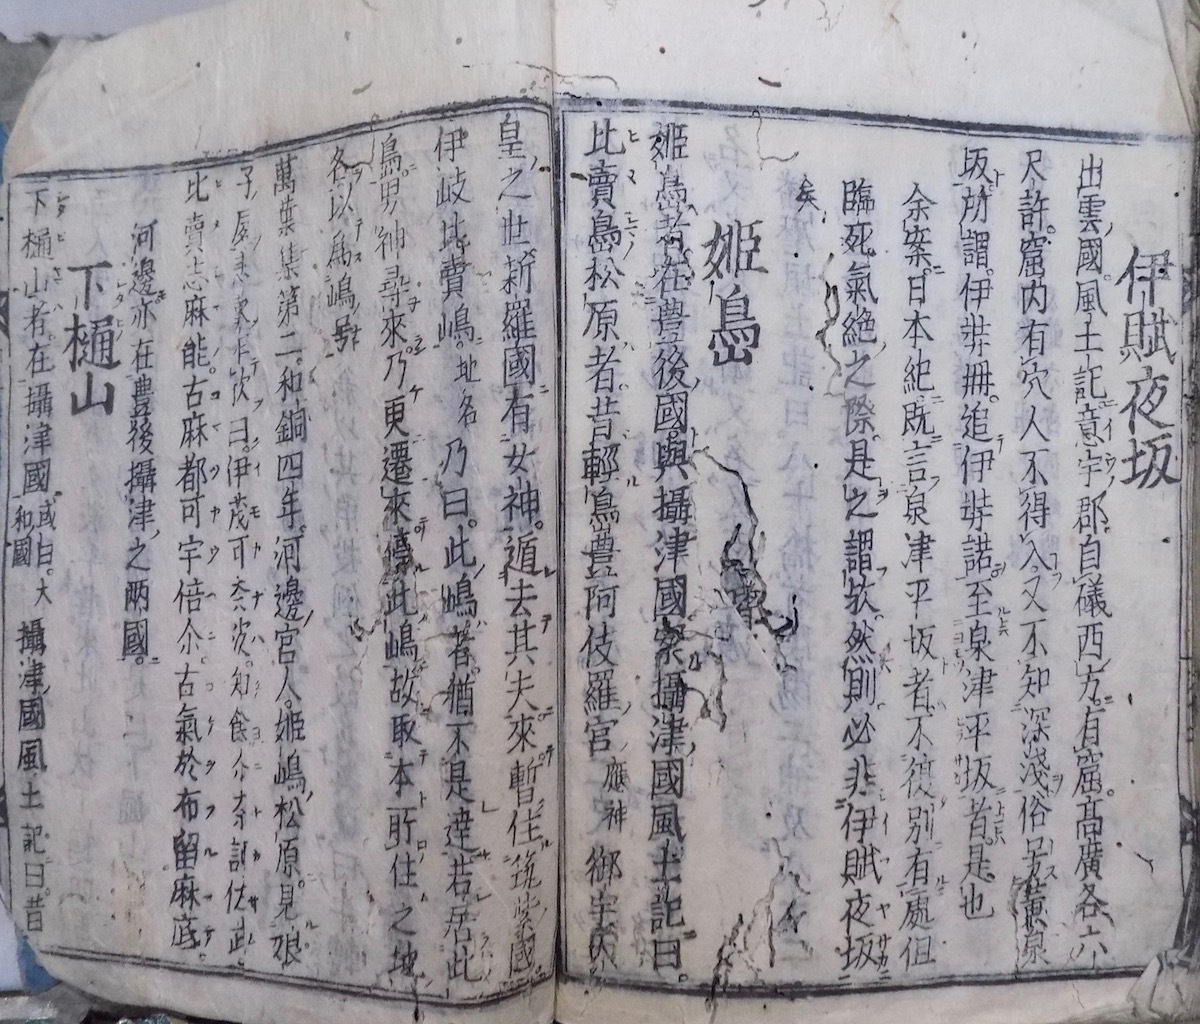 伊賦夜坂
出雲國風土記意宇郡。自礒西方。有窟。高廣各六
尺許。窟内有穴人不得入。又不知深淺俗号黄泉
坂所謂。伊弉冊。追伊弉諾。至泉津平坂者。是也
余案。日本紀。既言泉津平坂者。不復別有處但
臨死氣絶之際。是之謂欤。然則必非伊賦夜坂
矣
姫嶌
姫嶌者。在豊後國與攝津國案攝津國風土記曰。
比賣島松原者。昔輕嶋豊阿伎羅宮應神御宇天
皇之世。新羅國有女神。遁去其夫來暫住筑紫國
伊岐比賣嶋。地名乃曰。此嶋者。猶不是遠若居此
嶋男神尋來乃更遷來停此嶋故取本所住之地
名以為嶋号
萬葉集第二。和銅四年。河邊宮人。姫嶋松原。見娘
子屍悲歎作歌曰。
比賣志麻能。古麻都可宇倍尓。古氣於布留麻底。
河邊亦在豊後攝津之兩國。
下樋山
下樋山者。在攝津國或曰。大和國攝津國風土記曰。昔